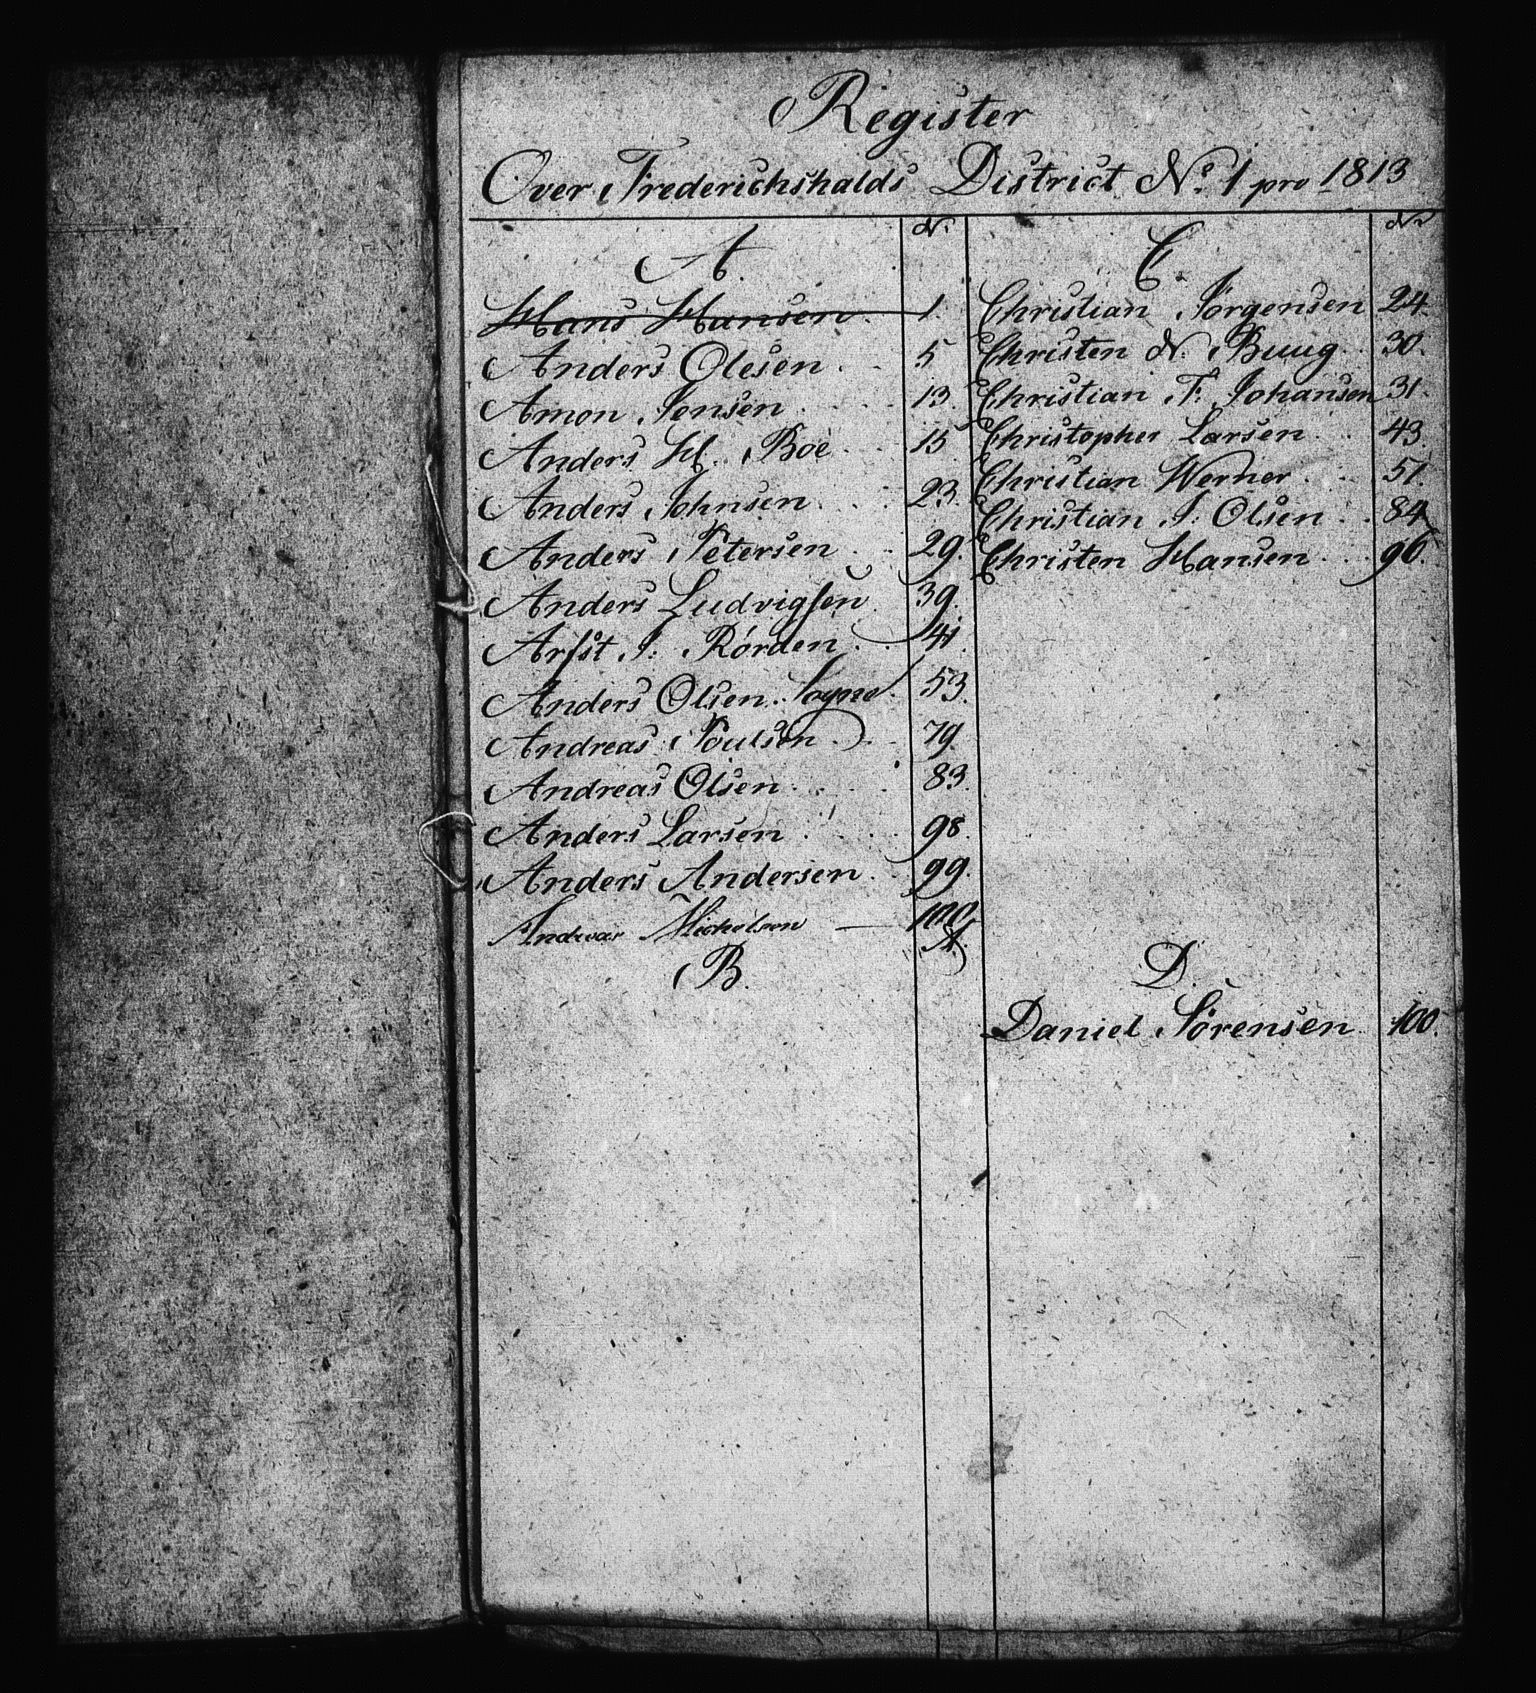 Register
Over Frederichshalds District No. 1 pro 1813
No.
A.
Hans Hansen. 1.
Anders Olesen . . 5
Amon Jensen . . . . 13.
Anders H. Boe . . 15
Anders Johnsen . . . . 23.
Anders Petersen . . 29.
Anders Ludvigsen. 39.
Arfst J: Rörden . . 41.
Anders Olsen. 53.
Andreas Poulsen . . 79.
Andreas Olsen . . . . 83.
Anders Larsen . . . . 98.
Anders Andersen . . 99.
Andreas Michelsen — 100
B.
No
C.
Christian Jörgensen 24.
Christen N. Buug . 30.
Christian F: Johansen 31.
Christopher Larsen . . 43
Christian Werner . . . 51.
Christian J: Olsen . . 84
Christen Hansen . . . 96.
D.
Daniel Sörensen 100.